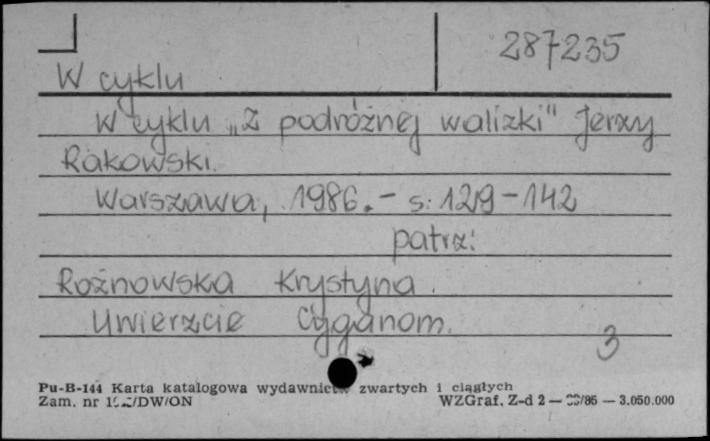 287235
W cyklu
W cyklu „Z podróżnej walizki" Jerzy
Rakowski.
Warszawa, 1986. - s. 129-142
patrz:
Rożnowska Krystyna.
Uwierzcie Cyganom.
3
Pu-B-144 Karta katalogowa zwartych i ciągłych
Zam. nr
WZGraf. Z-d 2 — 3.050.000